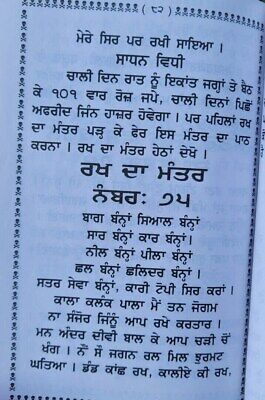 ( ੮੨ )
ਮੇਰੇ ਸਿਰ ਪਰ ਰਖੀ ਸਾਇਆ।
ਸਾਧਨ ਵਿਧੀ
ਚਾਲੀ ਦਿਨ ਰਾਤ ਨੂੰ ਇਕਾਂਤ ਜਗ੍ਹਾ ਤੇ ਬੈਠ
ਕੇ ੧੦੧ ਵਾਰ ਰੋਜ਼ ਜਪੇ, ਚਾਲੀ ਦਿਨਾਂ ਪਿਛੋਂ
ਅਫਰੀਦ ਜਿੰਨ ਹਾਜ਼ਰ ਹੋਵੇਗਾ। ਪਰ ਪਹਿਲਾਂ ਰਖ
ਦਾ ਮੰਤਰ ਪੜ੍ਹ ਕੇ ਫੇਰ ਇਸ ਮੰਤਰ ਦਾ ਪਾਠ
ਕਰਨਾ। ਰਖ ਦਾ ਮੰਤਰ ਹੇਠਾਂ ਦੇਖੋ।
ਰਖ ਦਾ ਮੰਤਰ
ਨੰਬਰ: ੭੫
ਬਾਗ ਬੰਨ੍ਹਾਂ ਸਿਆਲ ਬੰਨ੍ਹਾਂ
ਸਾਰ ਬੰਨ੍ਹਾਂ ਕਾਰ ਬੰਨ੍ਹਾਂ।
ਨੀਲ ਬੰਨ੍ਹਾਂ ਪੀਲਾ ਬੰਨ੍ਹਾਂ
ਛਲ ਬੰਨ੍ਹਾਂ ਛਲਿਦਰ ਬੰਨ੍ਹਾਂ।
ਸਤਰ ਸੇਵਾ ਬੰਨ੍ਹਾਂ, ਕਾਰੀ ਟੋਪੀ ਸਿਰ ਕਰਾਂ।
ਕਾਲਾ ਕਲੰਕ ਪਾਲਾ ਮੈਂ ਤਨ ਜੋਗਮ
ਨਾ ਸੰਜੋਰ ਜਿੰਨੂੰ ਆਪ ਰਖੇ ਕਰਤਾਰ।
ਮਨ ਅੰਦਰ ਦੀਵੀ ਬਾਲ ਕੇ ਆਪ ਚੜੀ ਰੋਂ
ਖੰਗ। ਨੌਂ ਸੌ ਜਗਨ ਰਲ ਮਿਲ ਝੁਰਮਟ
ਘਤਿਆ। ਡੰਡ ਕਾਂਛ ਰਖ, ਕਾਲੀਏ ਕੀ ਰਖ,